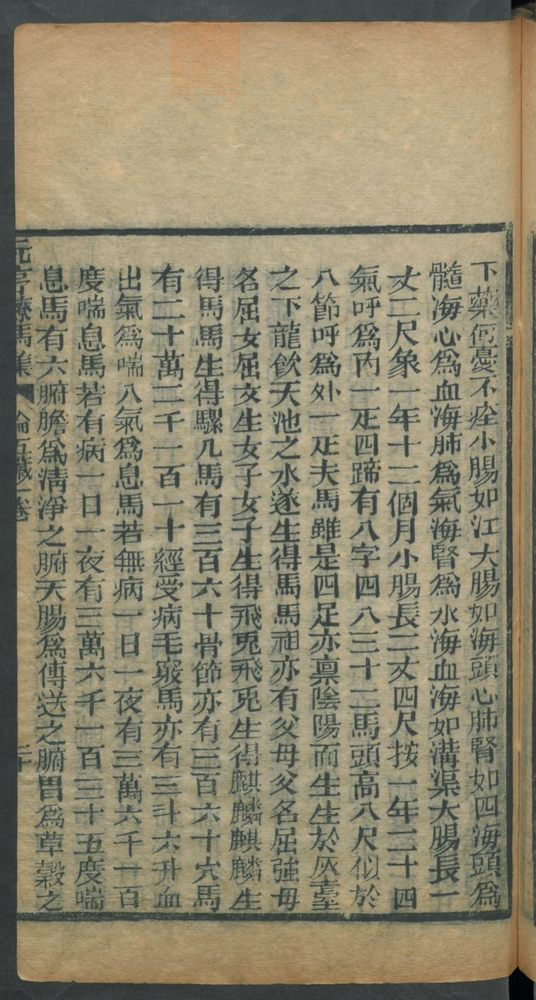 下藥何憂不痊小腸如江大腸如海頭心肺腎如四海頭爲
髓海心爲血海肺爲氣海腎爲水海血海如溝渠大腸長一
丈二尺象一年十二個月小腸長二丈四尺按一年二十四
氣呼爲內一疋四蹄有八字四八三十二馬頭高八尺似於
八節呼爲外一疋夫馬雖是四足亦稟陰陽而生生於灰臺
之下龍飲天池之水遂生得馬馬祖亦有父母父名屈強母
名屈女屈女生女子女子生得飛兎飛兎生得麒麟麒麟生
得馬馬生得騾凡馬有三百六十骨節亦有三百六十穴馬
有二十萬二千一百一十經受病毛竅馬亦有三斗六升血
出氣爲喘入氣爲息馬若無病一日一夜有三萬六千一百
度喘息馬若有病一日一夜有三萬六千一百三十五度喘
息馬有六腑膽爲清淨之腑大腸爲傳送之腑胃爲草穀之
元亨療馬集 論五臟之卷 二十